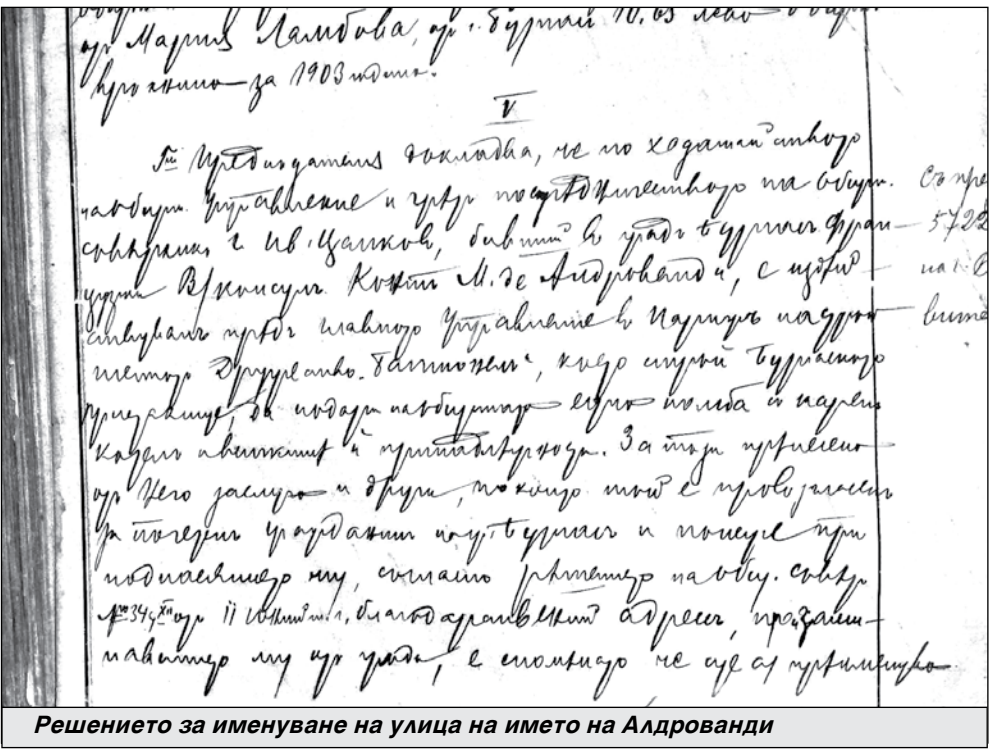 от Мария Ламбова, от г. Бургас 10.65 лева
за 1903 година.
V
Г-нъ Председателя докладва, че по ходатайството
на общин. Управление и чрѣзъ посрѣдничеството на общин.
съвѣтникъ г. Ив. Цанковъ, бивший въ градъ Бургасъ Фран-
цузки В/консулъ Контъ М. де Алдрованди, е издѣй-
ствувалъ прѣдъ главното Управление въ Парижъ на
Дружество „Батиньолъ“, което строи Бургаското
пристанище, да подари на общината една
и принадлѣжности. За тази
отъ Него заслуга и други, по които той е провъзгласенъ
за почетенъ гражданинъ на гр. Бургасъ и понеже при
поднасянието му, съгласно рѣшението на общ. съвѣтъ
№ 349 отъ 11 Юний т. г., благодарственний адресъ,
му отъ града, е споменато че ще се прѣименува
Съ пре
5722
на г.
вите
Решението за именуване на улица на името на Алдрованди